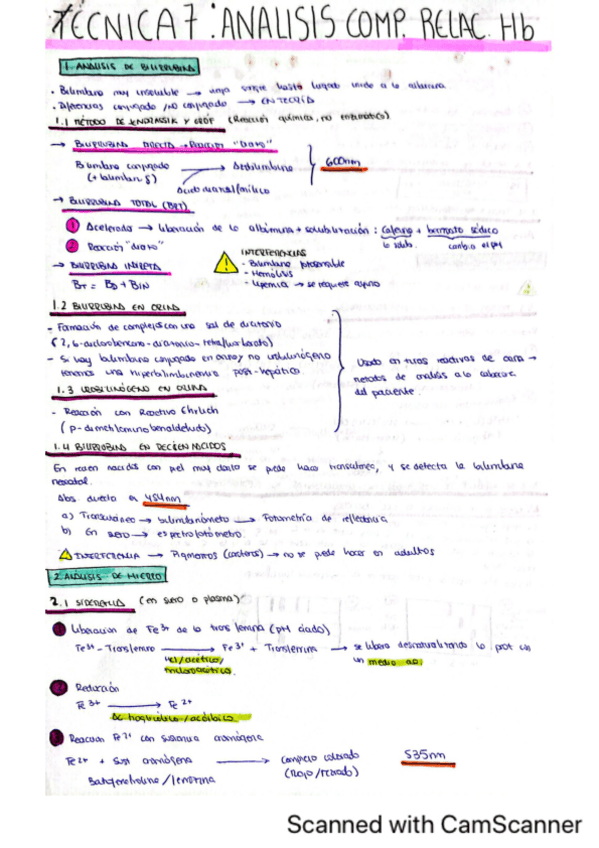 TÉCNICA 7: ANALISIS COMP. RELAC. Hb
1. ANALISIS DE BILIRRUBINA
· Bilirrubina muy insoluble → en sangre hasta hígado unida a la albúmina
· Diferencias conjugada / no conjugada →
1.1 MÉTODO DE JENDRASSIK Y GRÓF (Reacción química, no enzimática)
→ BILIRRUBINA DIRECTA → REACCIÓN "diazo"
Bilirrubina conjugada → Azobilirrubina
(+ bilirrubina δ)
600nm
Ácido diazosulfanílico
→ BILIRRUBINA TOTAL (BRT)
1 Acelerador → liberación de la albúmina + solubilización: Cafeína + benzoato sódico
la solub. cambia el pH
2 Reacción "diazo"
→ BILIRRUBINA INDIRECTA
BT = BD + BIN
INTERFERENCIAS
- Bilirrubina fotosensible
- Hemólisis
- Lipemia → se requiere ayuno
1.2 BILIRRUBINA EN ORINA
- Formación de complejos con una sal de diazonio
(2,6-diclorobenceno-diazonio-tetrafluoroborato)
- Si hay bilirrubina conjugada en orina y no urobilinógeno
tenemos una hiperbilirrubinemia post-hepática.
Usado en tiras reactivas de orina →
métodos de análisis a la cabecera
del paciente.
1.3 UROBILINÓGENO EN ORINA
- Reacción con Reactivo Ehrlich
(p-dimetilaminobenzaldehído)
1.4 BILIRRUBINA EN RECIÉN NACIDOS
En recién nacidos con piel muy clara se puede hacer transcutánea, y se detecta la bilirrubina
neonatal.
Abs directa a 454nm
a) Transcutáneo → bilirrubinómetro → Fotometría de reflectancia
b) En suero → espectrofotómetro.
INTERFERENCIA → Pigmentos (carotenos) → no se puede hacer en adultos
2. ANALISIS DE HIERRO
2.1 SIDEREMIA (en suero o plasma)
1 Liberación de Fe3+ de la transferrina (pH ácido)
Fe3+-Transferrina → Fe3+ + Transferrina → se libera desnaturalizando la prot con
un medio ác.
HCl/acético/
tricloroacético.
2 Reducción
Fe3+ → Fe2+
Ác tioglicólico/ascórbico.
3 Reacción Fe2+ con sustancia cromógena
Fe2+ + Sust cromógena → complejo coloreado
(rojo/rosado)
535nm
Batofenantrolina/ferrozina
Scanned with CamScanner